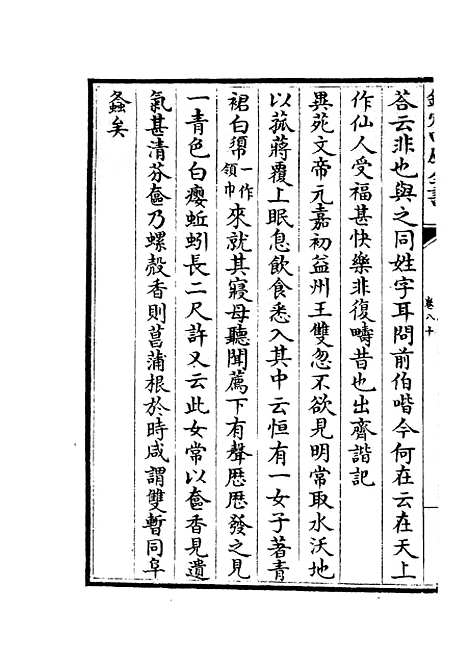 答云非也與之同姓字耳問前伯喈今何在云在天上
作仙人受福甚快樂非復疇昔也出齊諧記
異苑文帝元嘉初益州王雙忽不欲見明常取水沃地
以菰蔣覆上眠息飲食悉入其中云恒有一女子著青
裙白㡓一作領巾來就其寢母聽聞薦下有聲歷歷發之見
一青色白癭蚯蚓長二尺許又云此女常以奩香見遺
氣甚清芬奩乃螺殻香則菖蒲根於時咸謂雙暫同阜
螽矣
卷八十